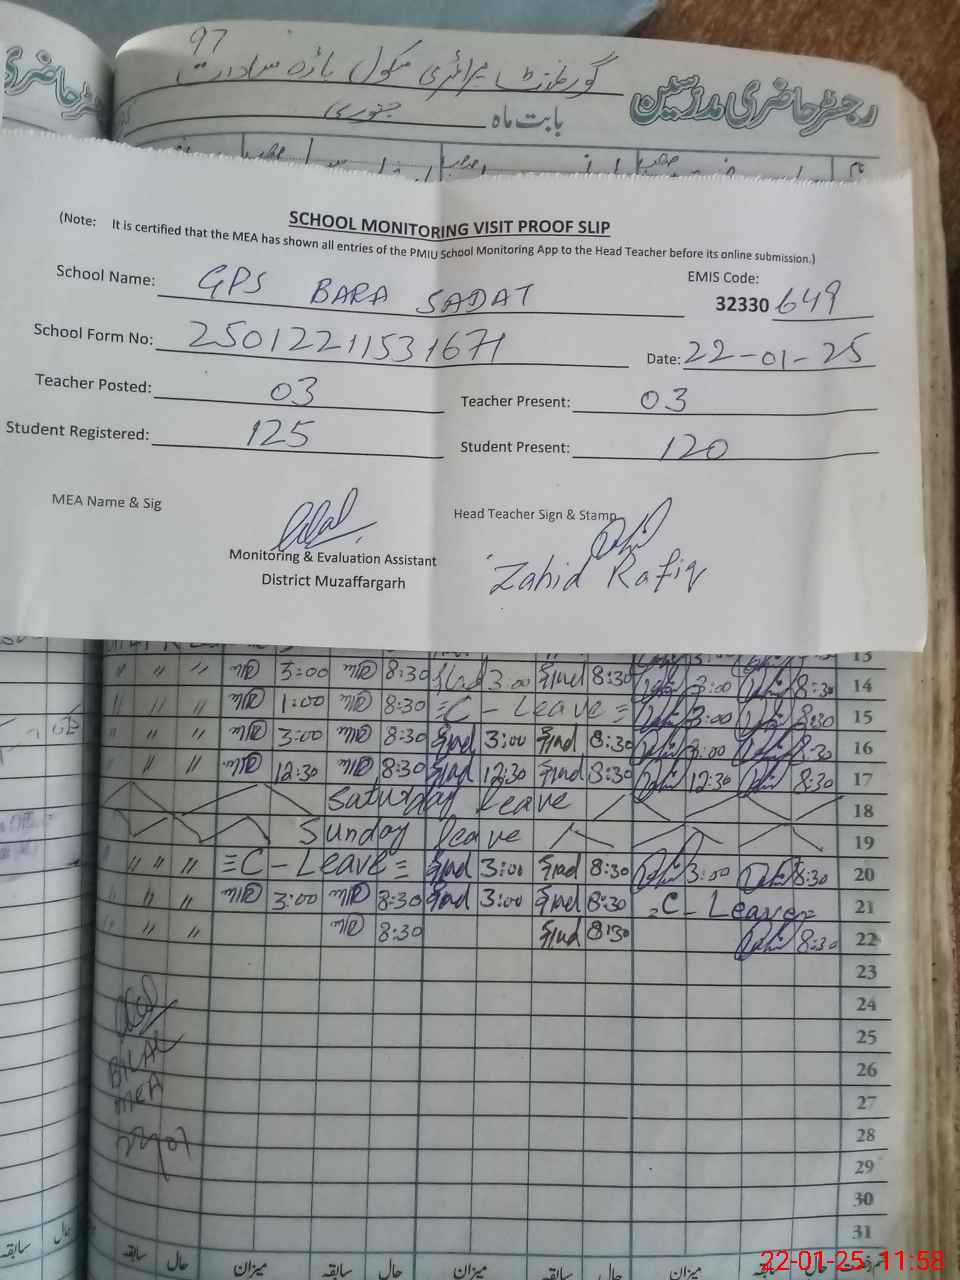 97
گورنمنٹ پرائمری سکول باڑہ سادات
رجسٹر حاضری مدرسین
بابت ماہ جنوری
SCHOOL MONITORING VISIT PROOF SLIP
(Note: It is certified that the MEA has shown all entries of the PMIU School Monitoring App to the Head Teacher before its online submission.)
School Name: GPS BARA SADAT
EMIS Code:
32330 649
School Form No: 25012211531671
Date: 22-01-25
Teacher Posted: 03
Teacher Present: 03
Student Registered: 125
Student Present: 120
MEA Name & Sig
Head Teacher Sign & Stamp
Monitoring & Evaluation Assistant
District Muzaffargarh
Zahid Rafiq
13
" " " 3:00 8:30 3:00 8:30 3:00 8:30 14
" " " 1:00 8:30 =C - Leave = 3:00 8:30 15
" " " 3:00 8:30 3:00 8:30 3:00 8:30 16
" " " 12:30 8:30 12:30 8:30 12:30 8:30 17
Saturday leave 18
Sunday leave 19
" " " =C - Leave = 3:00 8:30 3:00 8:30 20
" " " 3:00 8:30 3:00 8:30 C - Leave = 21
" " " 8:30 8:30 8:30 22
23
24
25
BILAL 26
MEA 27
28
29
30
31
سابقہ حال میزان سابقہ حال میزان سابقہ حال میزان سابقہ حال
22-01-25 11:58